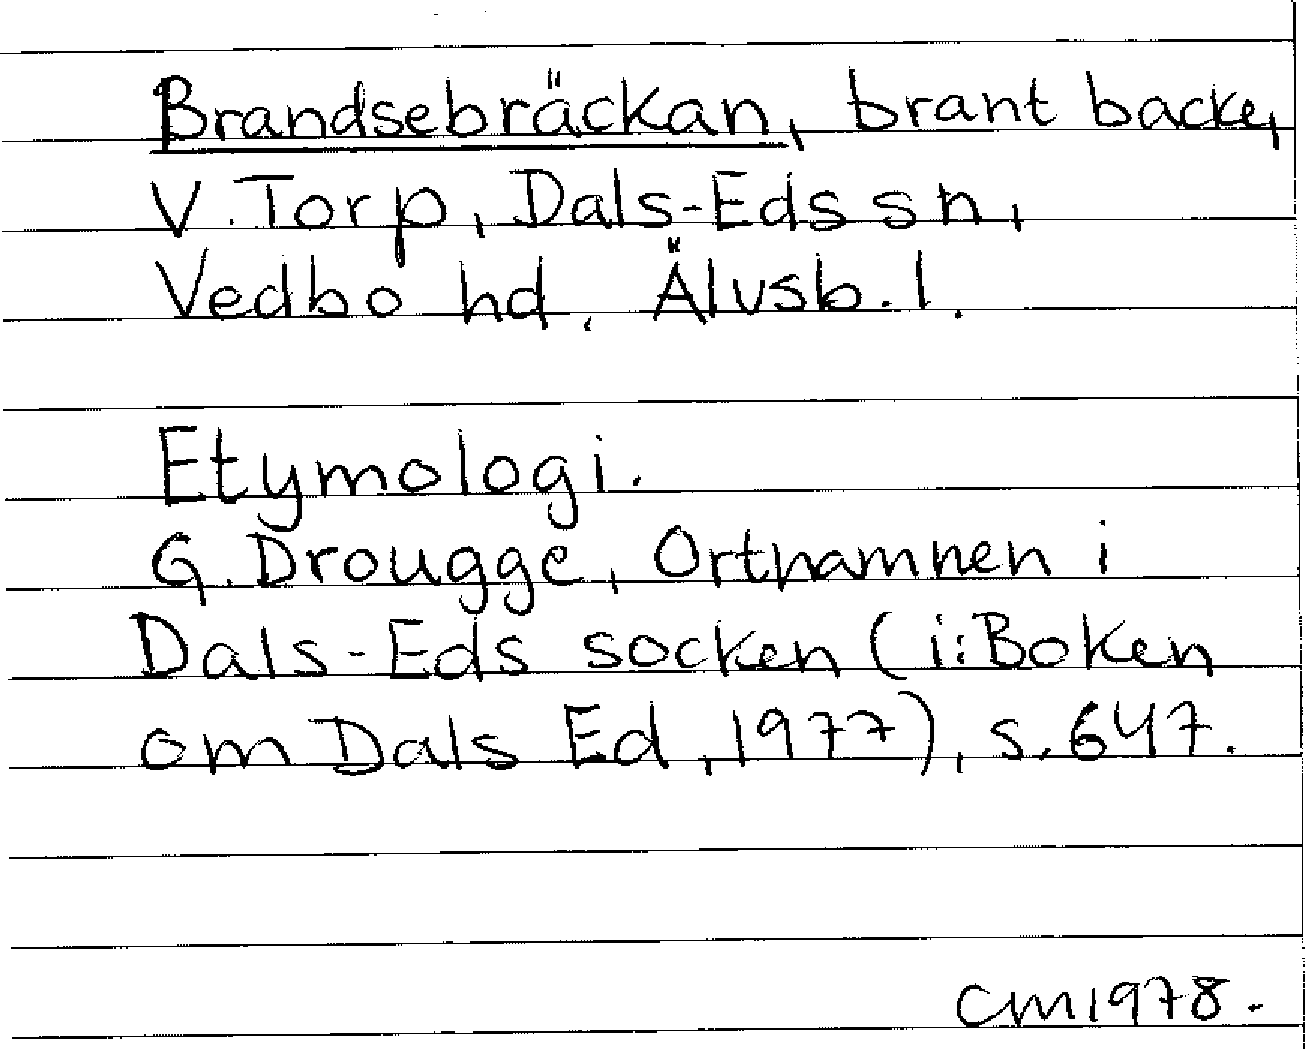 Brandsebräckan, brant backe,
V. Torp, Dals-Eds sn,
Vedbo hd, Älvsb. l.
Etymologi.
G. Drougge, Ortnamnen i
Dals-Eds socken (i: Boken
om Dals Ed, 1977), s. 647.
CM 1978.